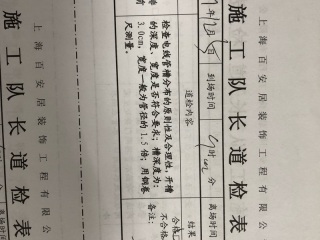 上海百安居装饰工程有限公
施工队长道检表
年12月 日 到场时间 9时 分 离场时间
追检内容 结果
检查电线管槽分布的原则性及合理性,开槽 合格
的深度、宽度是否符合要求;槽深度为: 不合格
3.0cm,宽度一般为管径的1.5倍;用钢卷 备注:
尺测量。
上海百安居装饰工程有限公
施工队长道检表
离场时间